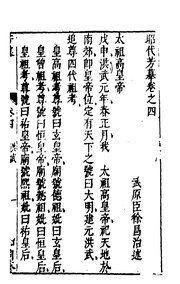 昭代芳摹卷之四
武原臣徐昌治述
太祖高皇帝
戊申洪武元年春正月我 太祖高皇帝祀天地於
南郊卽皇帝位定有天下之號曰大明建元洪武
追尊四代祖考
皇高祖考尊號曰玄皇帝廟號德祖妣曰玄皇后
皇曾祖考尊號曰恒皇帝廟號懿祖妣曰恒皇后
皇祖考尊號曰裕皇帝廟號熙祖妣曰裕皇后